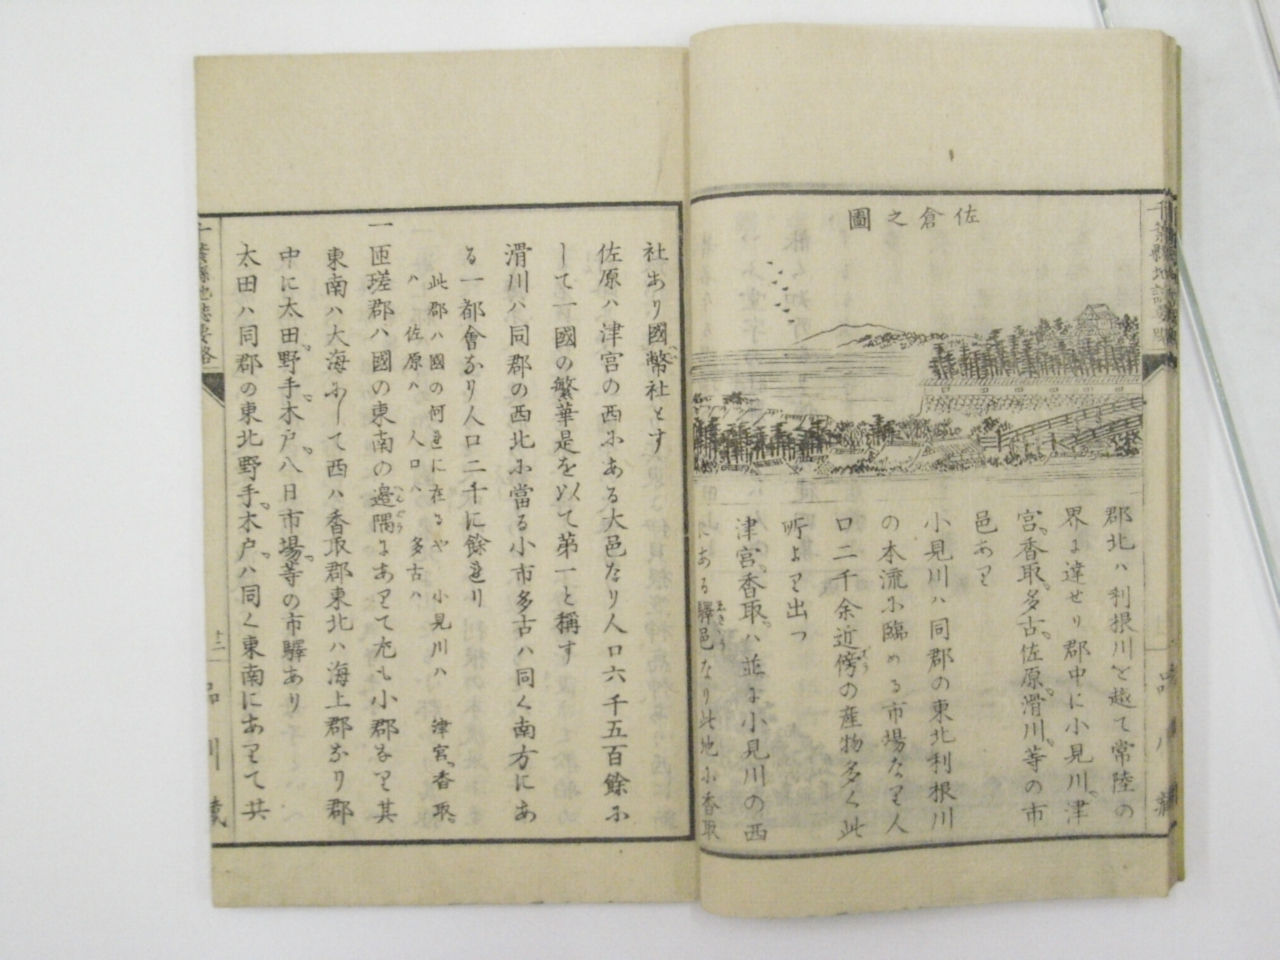 佐倉之圖
郡北ハ利根川を越て常陸の
界に達せり郡中に小見川。津
宮。香取。多古。佐原。滑川。等の市
邑あり
小見川ハ同郡の東北利根川
の本流に臨める市場なり人
口二千余近傍の産物多く此
所より出つ
津宮。香取。ハ並に小見川の西
にある驛邑なり此地に香取
社あり國幣社とす
佐原ハ津宮の西にある大邑なり人口六千五百餘に
して一國の繁華是を以て第一と稱す
滑川ハ同郡の西北に當る小市多古ハ同く南方にあ
る一都會なり人口二千に餘れり
此郡ハ國の何れに在るや 小見川ハ 津宮。香取。
ハ 佐原ハ 人口ハ 多古ハ
一匝瑳郡ハ國の東南の邊隅にありて尤も小郡なり其
東南ハ大海にして西ハ香取郡東北ハ海上郡なり郡
中に太田。野手。木戸。八日市場。等の市驛あり
太田ハ同郡の東北野手。木戸。ハ同く東南にありて共
千葉縣地誌要略
十二